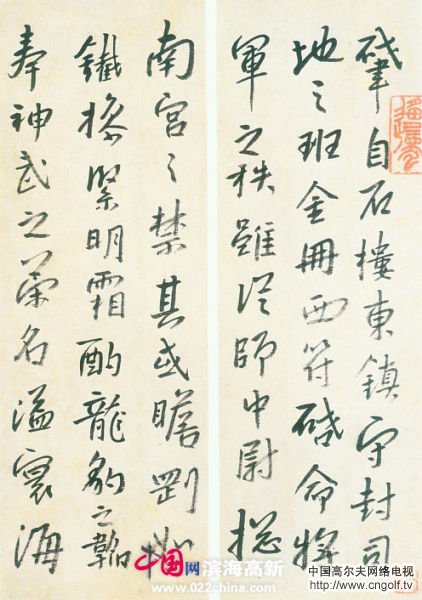 肇自石樓東鎮守封司
地之班金冊西符啓命將
軍之秩雖從師中尉總
南宮之禁其或瞻劉
鐵緊明霜酌龍豹之韜
奉神武之榮名溢寰海
中国网 滨海高新
www.022china.com
中国高尔夫网络电视
http://www.cngolf.tv